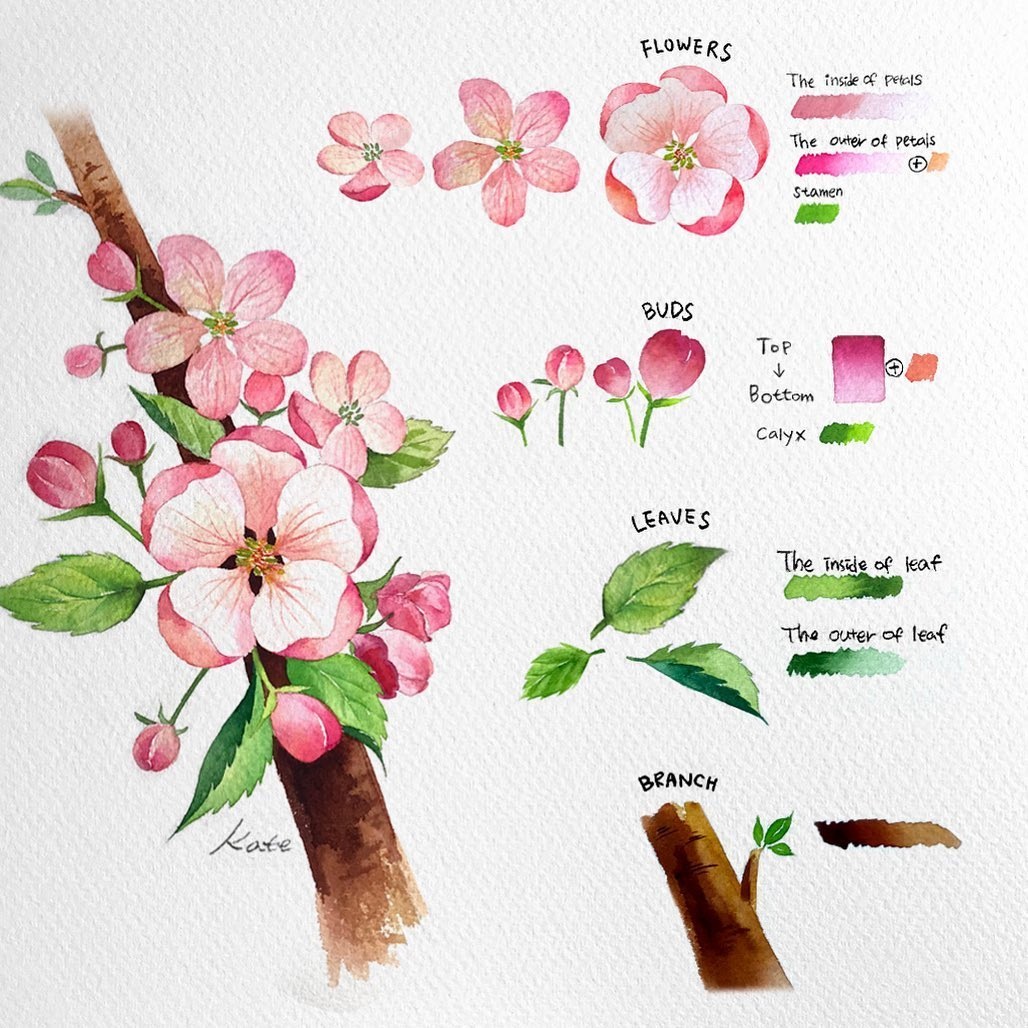 FLOWERS
The inside of petals
The outer of petals
+
Stamen
BUDS
Top
↓
Bottom
+
Calyx
LEAVES
The inside of leaf
The outer of leaf
BRANCH
Kate